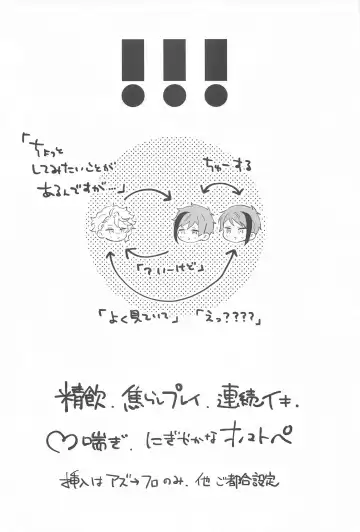 !!!
「ちょっと
してみたいことが
あるんですが…」
ちゅーする
「いーけど」
「よく見ていて」 「えっ????」
精飲、焦らしプレイ、連続イキ、
♡喘ぎ、にぎやかなオホトペ
挿入はアズ→フロのみ、他 ご都合設定